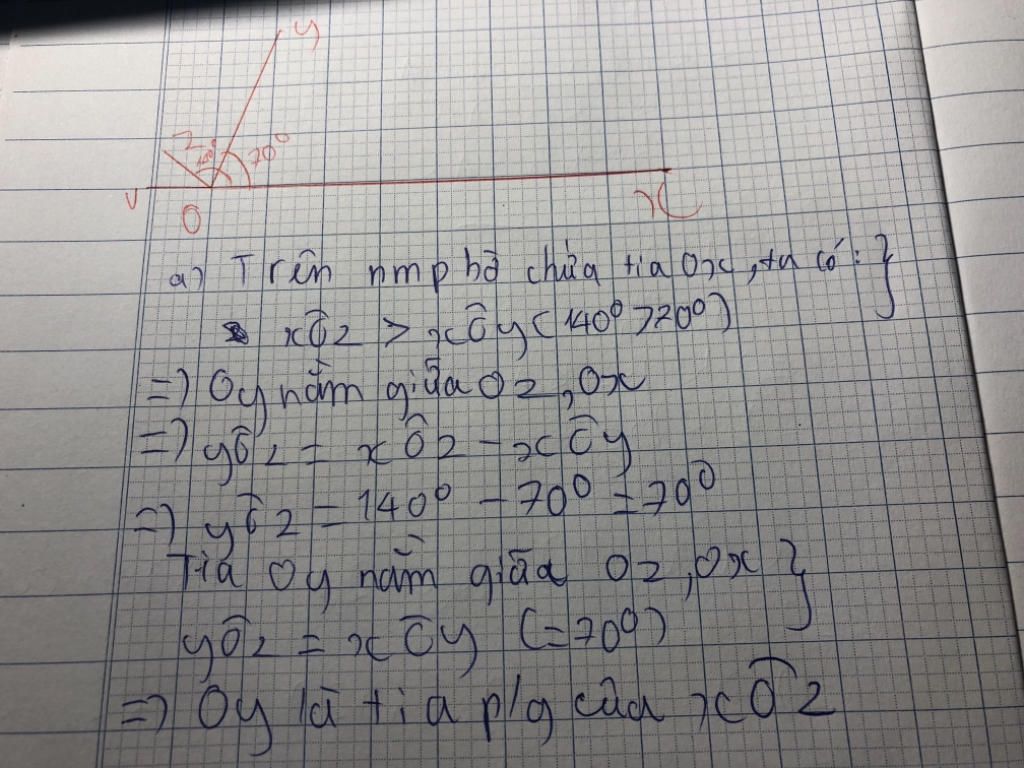 y
z 140° 70°
v O x
a) Trên nmp bờ chứa tia Ox, ta có: }
xÔz > xÔy (140° > 70°)
=) Oy nằm giữa Oz, Ox
=) yÔz = xÔz - xÔy
=) yÔz = 140° - 70° = 70°
Tia Oy nằm giữa Oz, Ox }
yÔz = xÔy (=70°)
=) Oy là tia p/g của xÔz